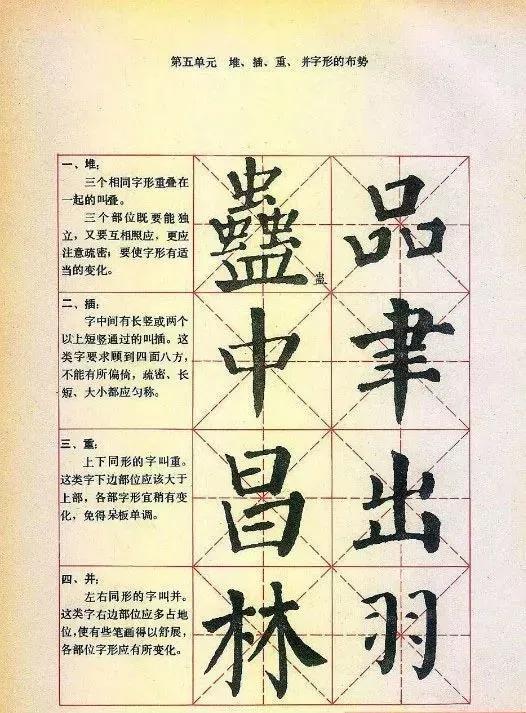 第五单元 堆、插、重、并字形的布势
一、堆：
三个相同字形重叠在
一起的叫叠。
三个部位既要能独
立，又要互相照应，更应
注意疏密；要使字形有适
当的变化。
蠱 品
蛊
二、插：
字中间有长竖或两个
以上短竖通过的叫插。这
类字要求顾到四面八方，
不能有所偏倚，疏密、长
短、大小都应匀称。
中 聿
三、重：
上下同形的字叫重。
这类字下边部位应该大于
上部，各部字形宜稍有变
化，免得呆板单调。
昌 出
四、并：
左右同形的字叫并。
这类字右边部位应多占地
位，使有些笔画得以舒展，
各部位字形应有所变化。
林 羽